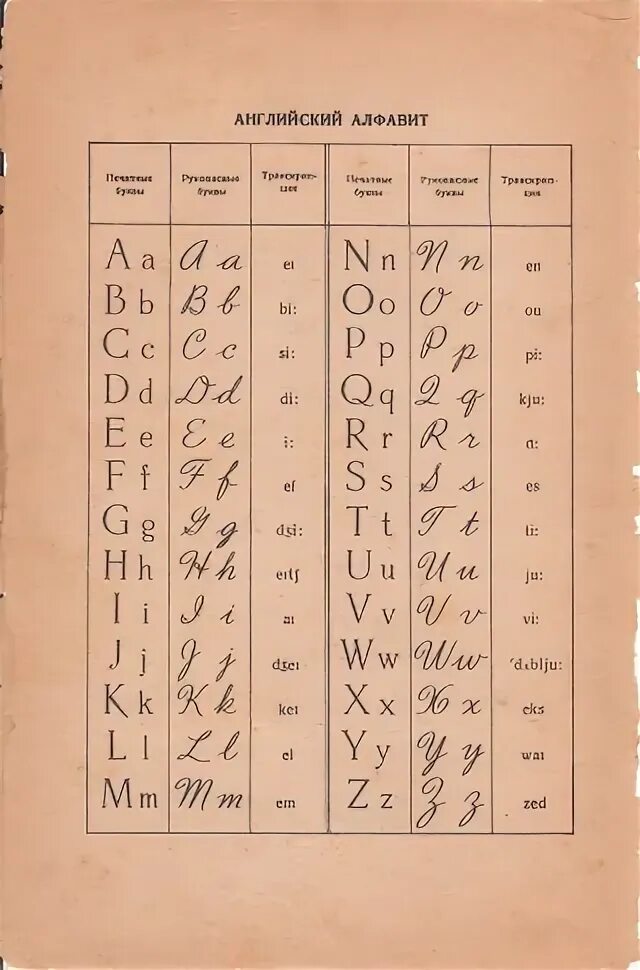 АНГЛИЙСКИЙ АЛФАВИТ
Печатные буквы Рукописные буквы Транскрип-ция Печатные буквы Рукописные буквы Транскрип-ция
A a A a eı N n N n en
B b B b bi: O o O o ou
C c C c si: P p P p pi:
D d D d di: Q q Q q kju:
E e E e i: R r R r ɑ:
F f F f ef S s S s es
G g G g dʒi: T t T t ti:
H h H h eıtʃ U u U u ju:
I i I i aı V v V v vi:
J j J j dʒeı W w W w ˈdʌblju:
K k K k keı X x X x eks
L l L l el Y y Y y waı
M m M m em Z z Z z zed